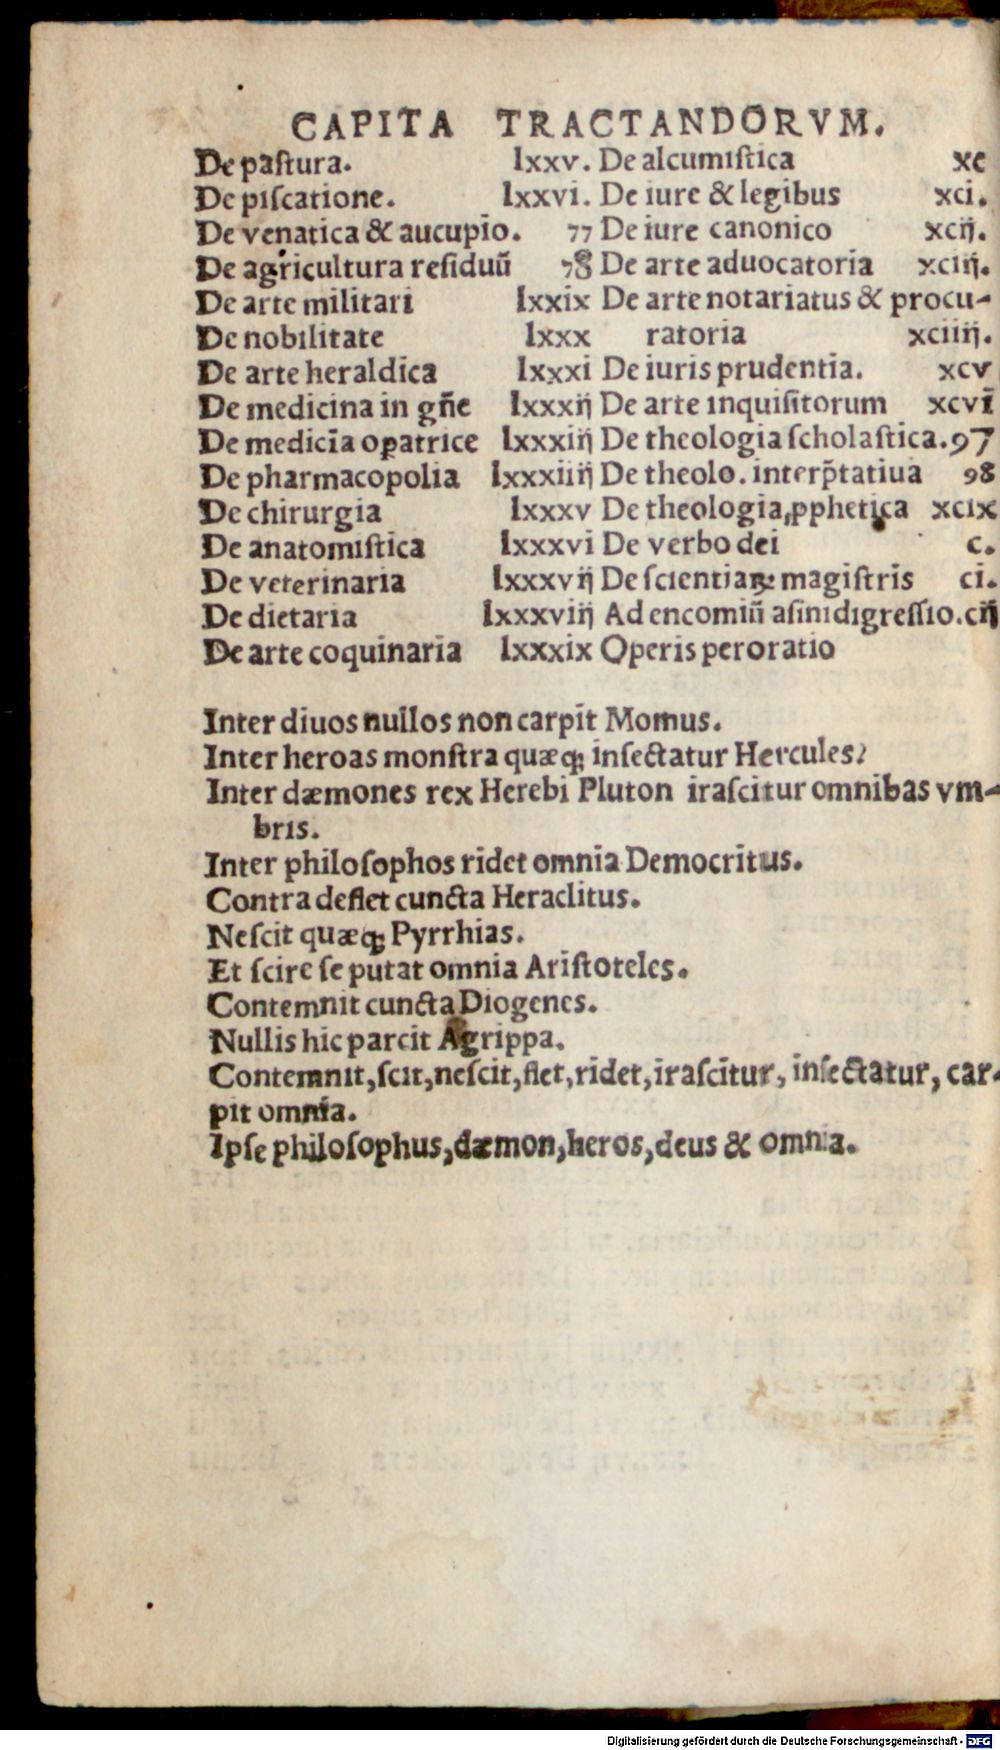 CAPITA TRACTANDORVM.
De paſtura. lxxv.
De piſcatione. lxxvi.
De venatica & aucupio. 77
De agricultura reſiduũ 78
De arte militari lxxix
De nobilitate lxxx
De arte heraldica lxxxi
De medicina in gñe lxxxij
De medicīa oꝑatrice lxxxiij
De pharmacopolia lxxxiiij
De chirurgia lxxxv
De anatomiſtica lxxxvi
De veterinaria lxxxvij
De dietaria lxxxviij
De arte coquinaria lxxxix
De alcumiſtica xc
De iure & legibus xci.
De iure canonico xcij.
De arte aduocatoria xciij.
De arte notariatus & procu-
ratoria xciiij.
De iuris prudentia. xcv
De arte inquiſitorum xcvī
De theologia ſcholaſtica. 97
De theolo. interp̃tatiua 98
De theologia ꝓphetica xcix
De verbo dei c.
De ſcientiaꝝ magiſtris ci.
Ad encomiũ aſini digreſſio. cij
Operis peroratio
Inter diuos nullos non carpit Momus.
Inter heroas monſtra quæq; inſectatur Hercules.
Inter dæmones rex Herebi Pluton iraſcitur omnibas vm-
bris.
Inter philoſophos ridet omnia Democritus.
Contra deflet cuncta Heraclitus.
Neſcit quæq; Pyrrhias.
Et ſcire ſe putat omnia Ariſtoteles.
Contemnit cuncta Diogenes.
Nullis hic parcit Agrippa.
Contemnit, ſcit, neſcit, flet, ridet, iraſcitur, inſectatur, car-
pit omnia.
Ipſe philoſophus, dæmon, heros, deus & omnia.
Digitalisierung gefördert durch die Deutsche Forschungsgemeinschaft - DFG